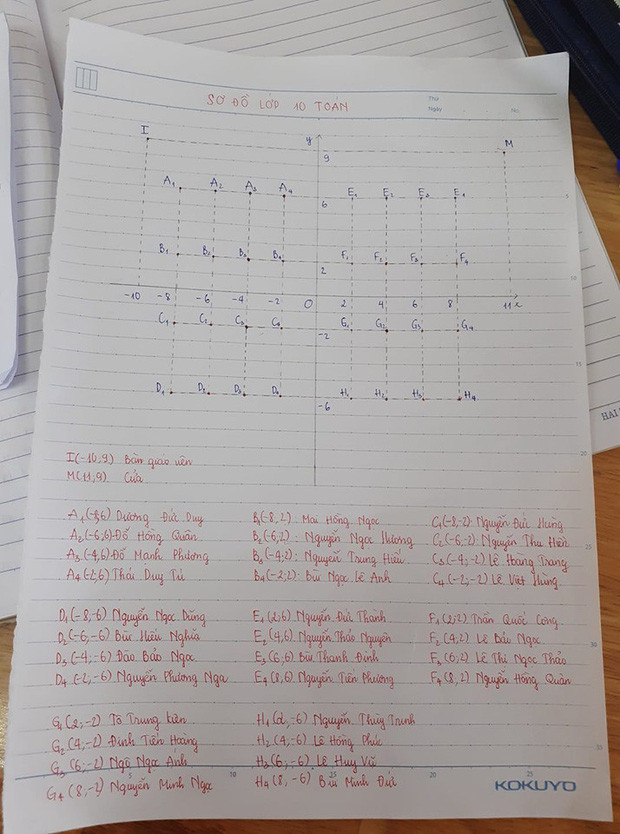 Thứ
Ngày No.
SƠ ĐỒ LỚP 10 TOÁN
I y M
9
A1 A2 A3 A4 E1 E2 E3 E4
6
B1 B2 B3 B4 F1 F2 F3 F4
2
-10 -8 -6 -4 -2 O 2 4 6 8 11 x
C1 C2 C3 C4 G1 G2 G3 G4
-2
D1 D2 D3 D4 H1 H2 H3 H4
-6
I(-10,9) Bàn giáo viên
M(11,9) Cửa
A1(-8,6) Dương Đức Duy
A2(-6,6) Đỗ Hồng Quân
A3(-4,6) Đỗ Mạnh Phương
A4(-2,6) Thái Duy Tú
B1(-8,2) Mai Hồng Ngọc
B2(-6,2): Nguyễn Ngọc Hương
B3(-4,2): Nguyễn Trung Hiếu
B4(-2,2): Bùi Ngọc Lê Anh
C1(-8,-2) Nguyễn Đức Hùng
C2(-6,-2) Nguyễn Thu Hiền
C3(-4,-2) Lê Hoàng Trang
C4(-2,-2) Lê Việt Hùng
D1(-8,-6) Nguyễn Ngọc Dũng
D2(-6,-6) Bùi Hiếu Nghĩa
D3(-4,-6) Đào Bảo Ngọc
D4(-2,-6) Nguyễn Phương Nga
E1(2,6) Nguyễn Đức Thanh
E2(4,6) Nguyễn Thảo Nguyên
E3(6,6) Bùi Thanh Đính
E4(8,6) Nguyễn Tiến Phương
F1(2,2) Trần Quốc Công
F2(4,2) Lê Bảo Ngọc
F3(6,2) Lê Thị Ngọc Thảo
F4(8,2) Nguyễn Hồng Quân
G1(2,-2) Tô Trung Kiên
G2(4,-2) Đinh Tiến Hoàng
G3(6,-2) Ngô Ngọc Anh
G4(8,-2) Nguyễn Minh Ngọc
H1(2,-6) Nguyễn Thùy Trinh
H2(4,-6) Lê Hồng Phúc
H3(6,-6) Lê Huy Vũ
H4(8,-6) Bùi Minh Đức
5 10 15 20 25
KOKUYO